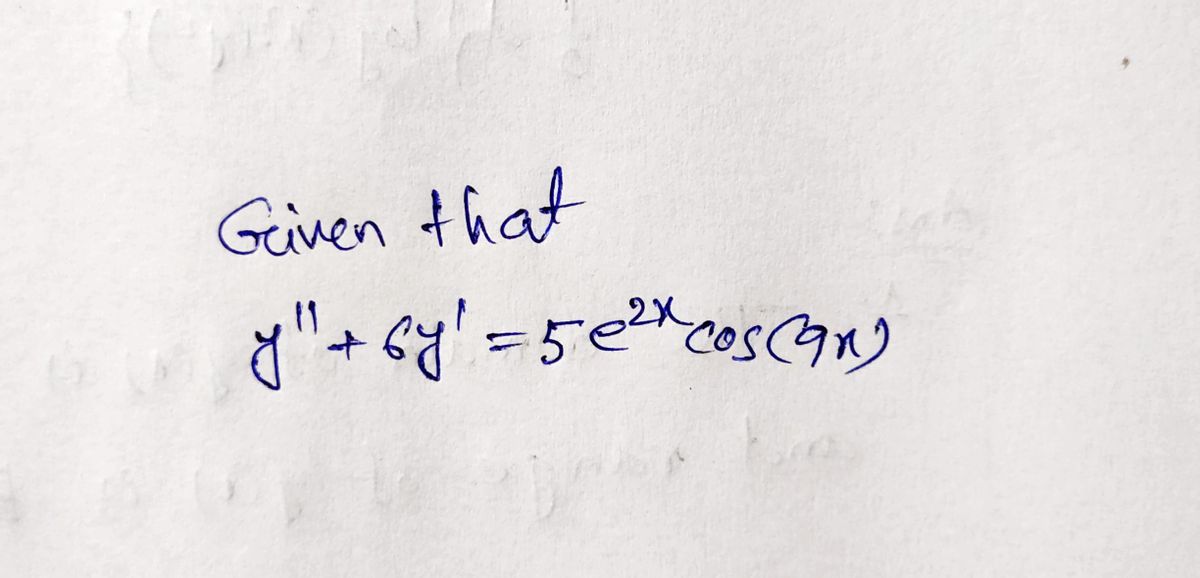 Given that
y'' + 6y' = 5e^{2x} cos(9x)